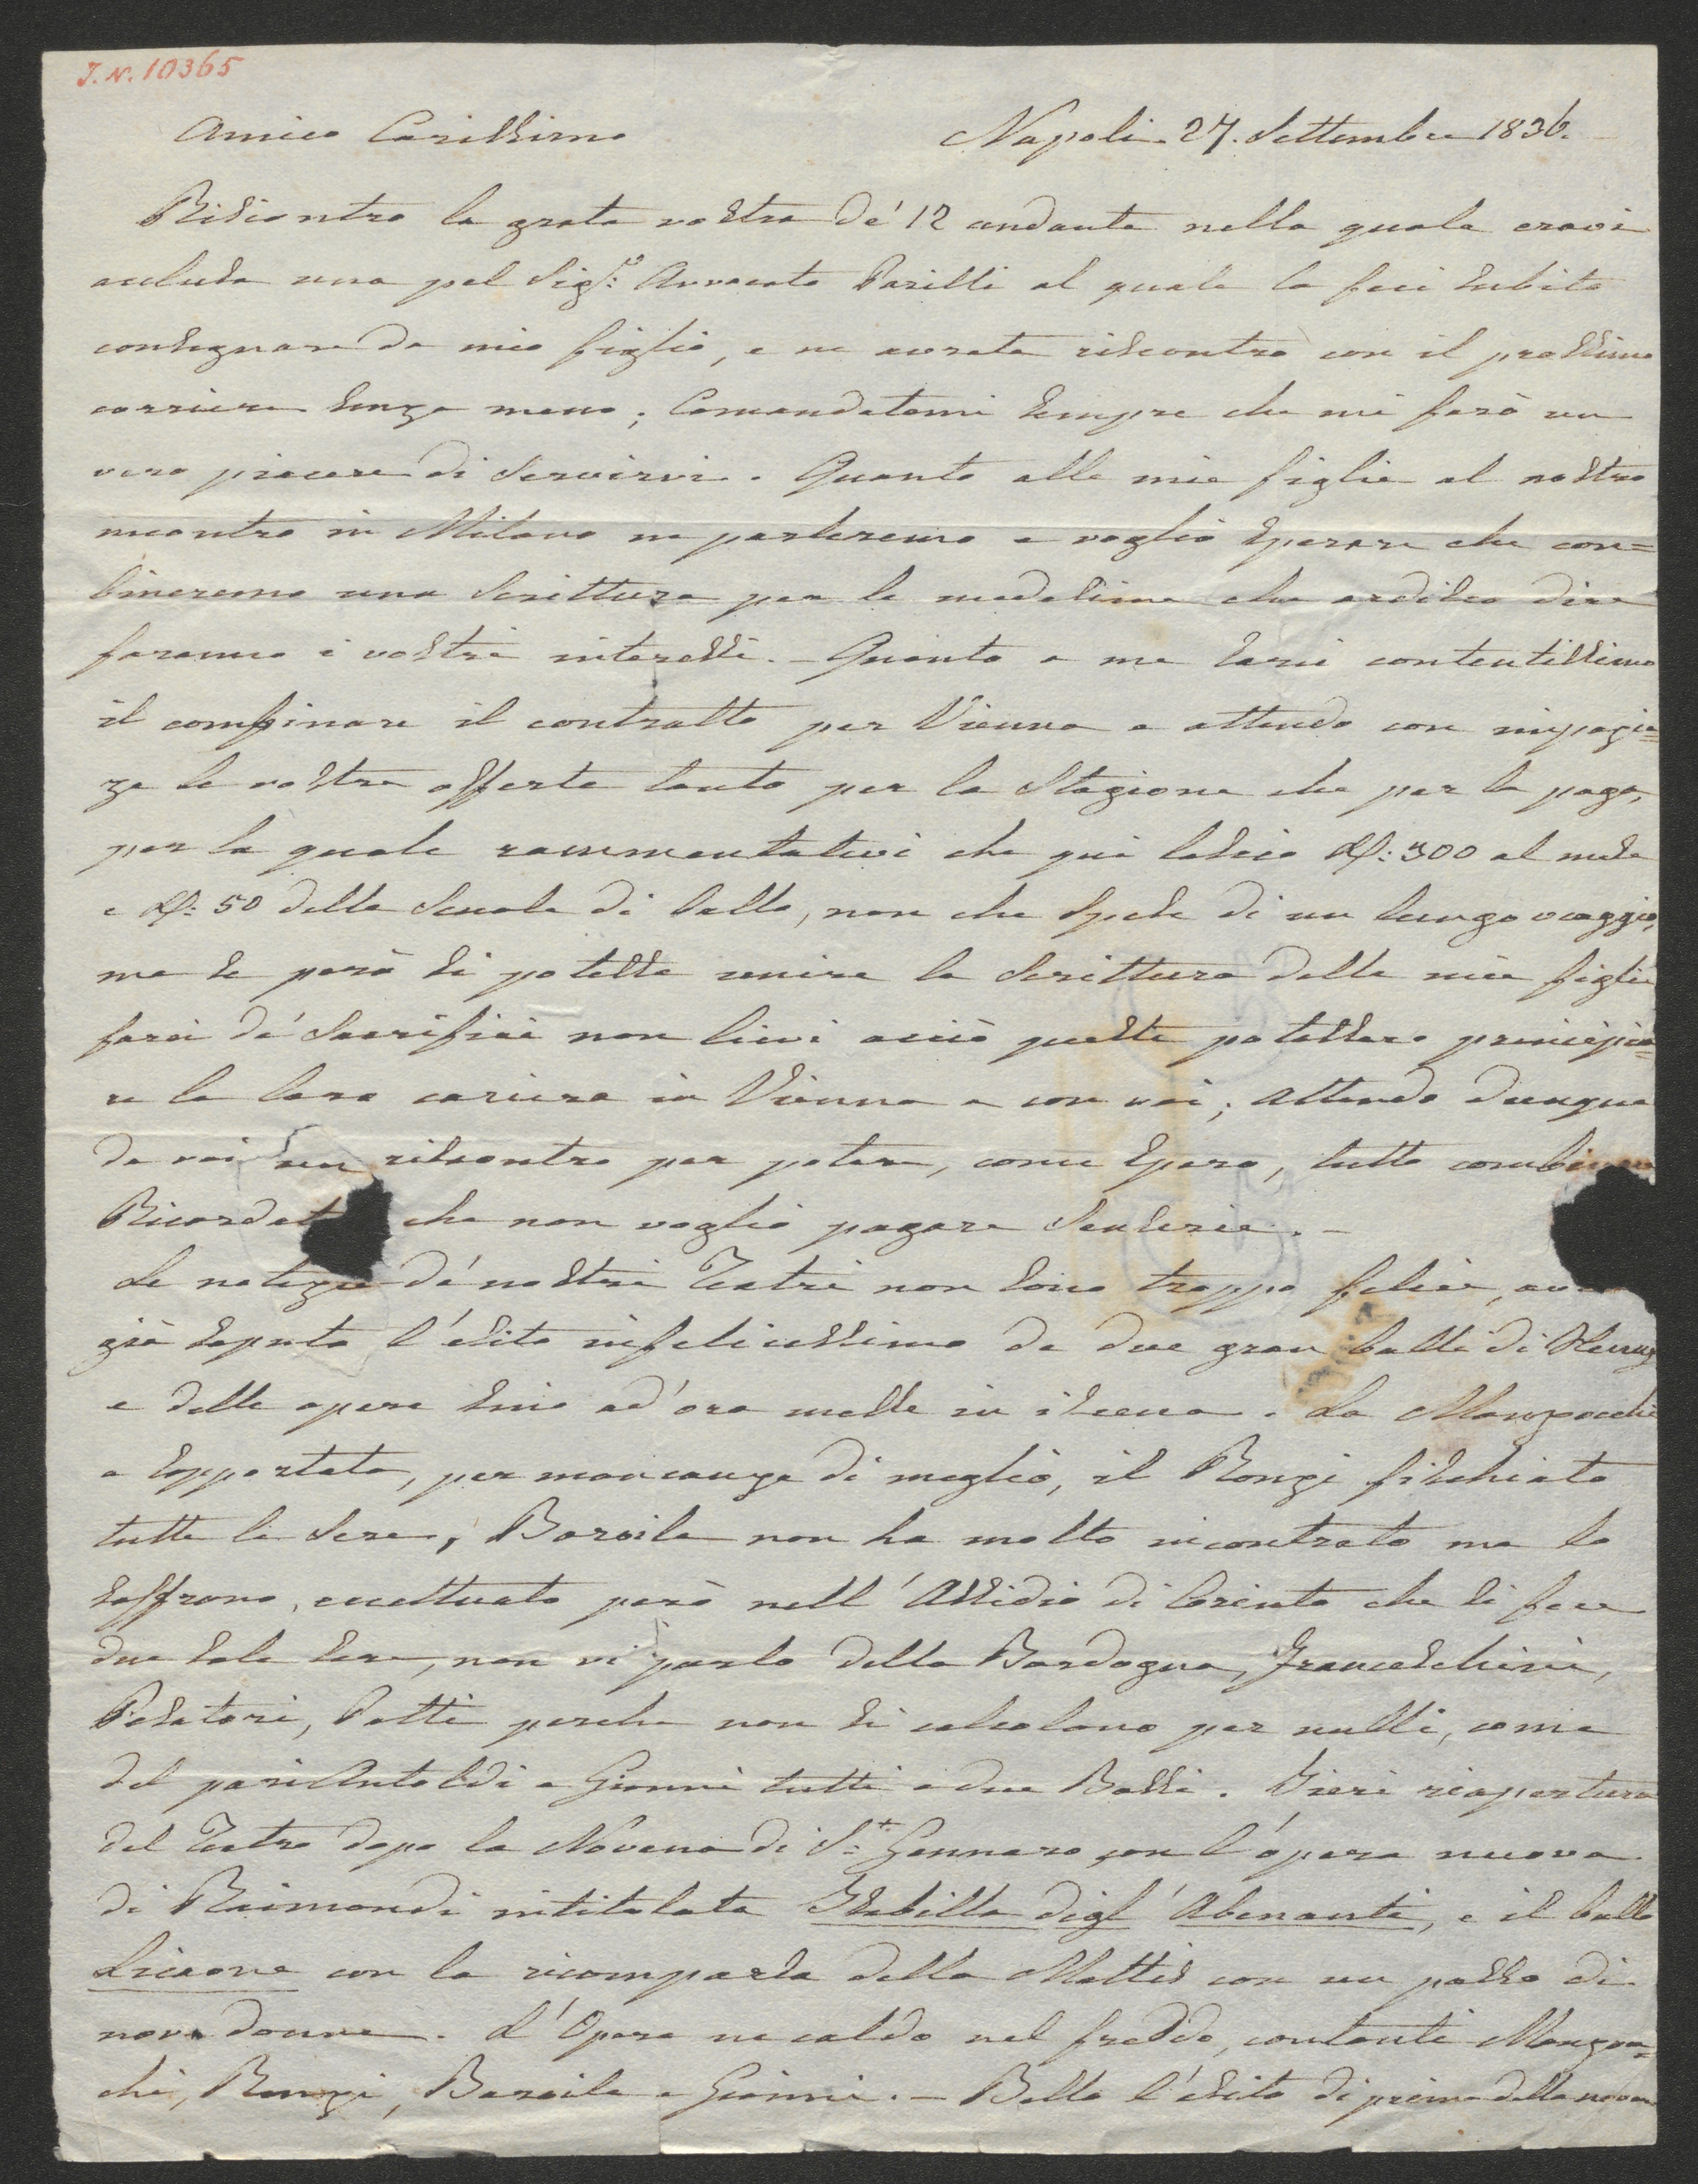 J.N. 10365
Amico Carissimo Napoli. 27. Settembre 1836.
Riscontro la grata vostra de' 12 andante nella quale eravi
acclusa una pel Sigr: Avvocato Parisi al quale la feci subito
consegnare da mio figlio, e ne avrete riscontro con il prossimo
corriere senza meno; Comandatemi sempre che mi farò un
vero piacere di servirvi. Quanto alle mie figlie al nostro
incontro in Milano ne parleremo e voglio sperare che con=
bineremo una Scrittura per le medesime che ardisco dire
faranno i vostri interessi. - Quanto a me sarei contentissimo
il combinare il contratto per Vienna e attendo con impazie=
za le vostre offerte tanto per la Stagione che per la paga,
per la quale rammentatevi che quì lascio D: 300 al mese
e D: 50 della Scuola di ballo, non che spese di un lungo viaggio,
ma se però si potesse unire la Scrittura delle mie figlie
farei de' Sacrifici non lievi acciò queste potessero principia=
re la loro cariera in Vienna e con voi; attendo dunque
da voi un riscontro per potere, come spero, tutto combinare
Ricordat che non voglio pagare Senserie. -
Le notizie de' nostri Teatri non sono troppo felici,
già saputo l'esito infelicissimo de due gran balli di Henry
e delle opere sino ad'ora messe in iscena. La Manzocchi
e sopportata, per mancanza di meglio, il Ronzi fischiato
tutte le sere, Baroilh non ha molto incontrato ma lo
soffrono, eccettuato però nell'Assidio di Corinto che si fece
due sole sere, non vi parlo della Bordogna, Franceschini,
Salatori, Patti perche non si calcolano per nulli, come
del pari Antoldi e Gianni tutti e due Bassi. Jeri riapertura
del Teatro dopo la Novena di St: Gennaro con l'opera nuova
di Raimondi intitolata Isabella digl' Abenanti, e il ballo
Licaone con la ricomparsa della Mattis con un passo di
nove donne. L'Opera ne caldo nel freddo, cantanti Manzoc=
chi, Ronzi, Baroile e Gianni. - Bello l'esito di prima della novena